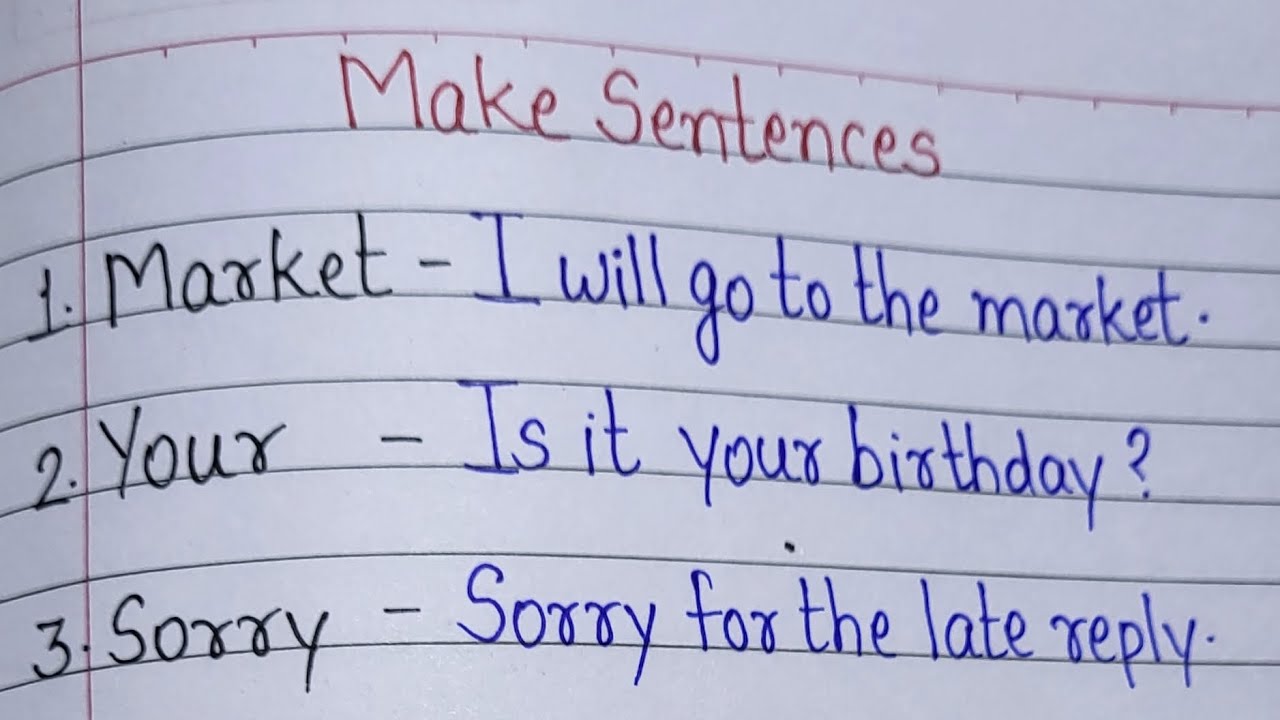 Make Sentences
1. Market - I will go to the market.
2. Your - Is it your birthday?
3. Sorry - Sorry for the late reply.